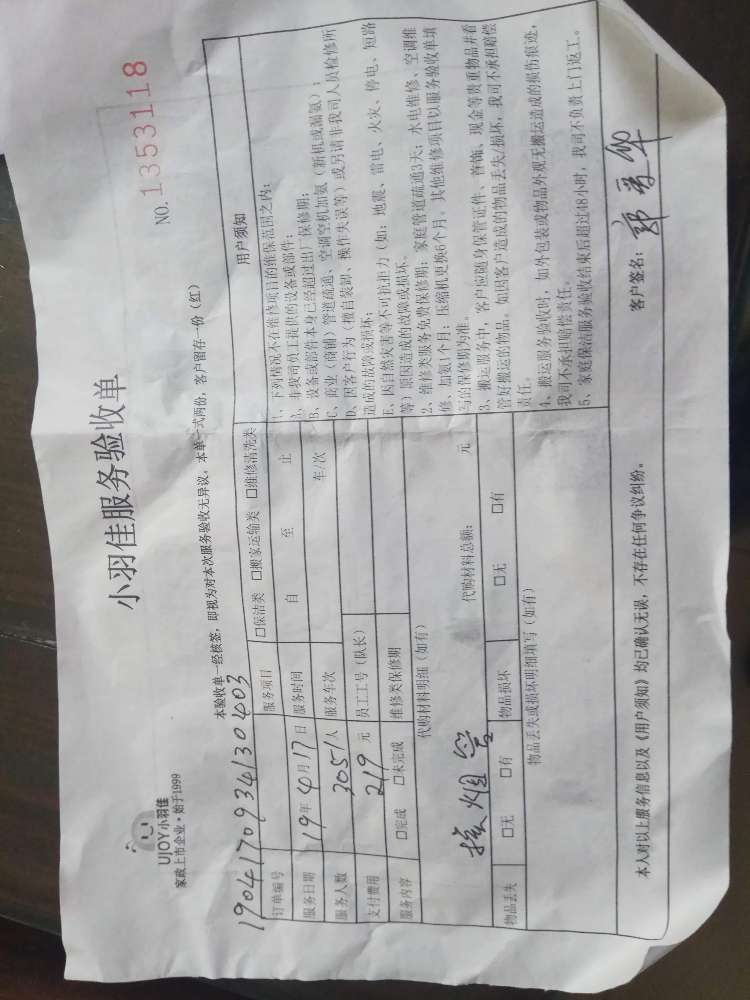 UJOY小羽佳
家政上市企业·始于1999
小羽佳服务验收单
NO. 1353118
本验收单一经核签，即视为对本次服务验收无异议。本单一式两份，客户留存一份（红）
订单编号 190417093413040З
服务项目 □保洁类 □搬家运输类 □维修清洗类
服务日期 19年4月17日 服务时间 自 至 止
服务人数 3051人 服务车次 车/次
支付费用 219 元 员工工号（队长）
服务内容 □完成 □未完成 维修类保修期
代购材料明细（如有）
烟管
代购材料总额： 元
物品丢失 □无 □有 物品损坏 □无 □有
物品丢失或损坏明细填写（如有）
用户须知
1、下列情况不在维修项目的维保范围之内：
A、非我司员工提供的设备或部件；
B、设备或部件本身已经超过出厂保修期；
C、商业（商铺）管道疏通、空调空机加氨（新机或漏氨）；
D、因客户行为（擅自装卸、操作失误等）或另请非我司人员检修所
造成的故障或损坏；
E、因自然灾害等不可抗拒力（如：地震、雷电、火灾、停电、短路
等）原因造成的故障或损坏。
2、维修类服务免费保修期：家庭管道疏通3天；水电维修、空调维
修、加氨1个月；压缩机更换6个月。其他维修项目以服务验收单填
写的保修期为准。
3、搬运服务中，客户应随身保管证件、首饰、现金等贵重物品并看
管好搬运的物品。如因客户造成的物品丢失/损坏，我司不承担赔偿
责任。
4、搬运服务验收时，如外包装或物品外观无搬运造成的损伤痕迹，
我司不承担赔偿责任。
5、家庭保洁服务验收结束后超过48小时，我司不负责上门返工。
本人对以上服务信息以及《用户须知》均已确认无误，不存在任何争议纠纷。
客户签名：